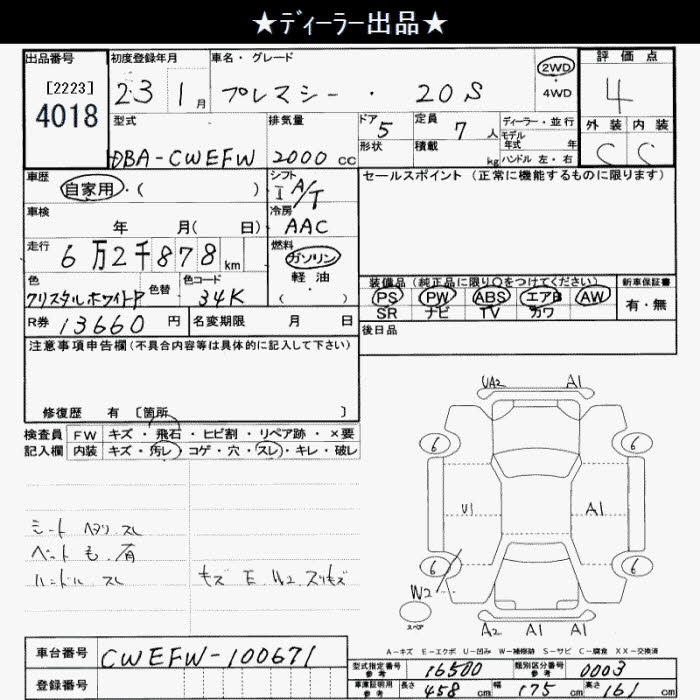 ★ディーラー出品★
出品番号
[2223]
4018
初度登録年月
23 1月
車名・グレード
プレマシー ・ 20S
2WD
4WD
評価点
4
外装 内装
C C
型式
DBA-CWEFW
排気量
2000 cc
ドア
5
形状
定員
7 人
積載
kg
ディーラー・並行
モデル年式 年
ハンドル 左・右
車歴
自家用・( )
シフト
I A/T
車検
年 月( 日)
冷房
AAC
走行
6万2千878km
燃料
ガソリン
軽油
( )
色
クリスタルホワイトP
色替
色コード
34K
R券 13660 円
名変期限 月 日
セールスポイント（正常に機能するものに限ります）
装備品（純正品に限り○をつけてください）
PS PW ABS エアB AW
SR ナビ TV カワ
新車保証書
有・無
後日品
注意事項申告欄(不具合内容等は具体的に記入して下さい)
修復歴 有 〔箇所 〕
検査員記入欄
FW キズ・飛石・ヒビ割・リペア跡・×要
内装 キズ・汚レ・コゲ・穴・スレ・キレ・破レ
シート ヘタリ スレ
ペット も 有
ハンドル スレ
キズ E W2 スリキズ
UA2 A1
6 6
U1 A1
6 6
W2
スペア
A2 A1 A1
A-キズ E-エクボ U-凹み W-補修跡 S-サビ C-腐食 XX-交換済
車台番号
CWEFW-100671
登録番号
型式指定番号参考 16500
類別区分番号参考 0003
車庫証明用参考 長さ 458 cm 幅 175 cm 高さ 161 cm